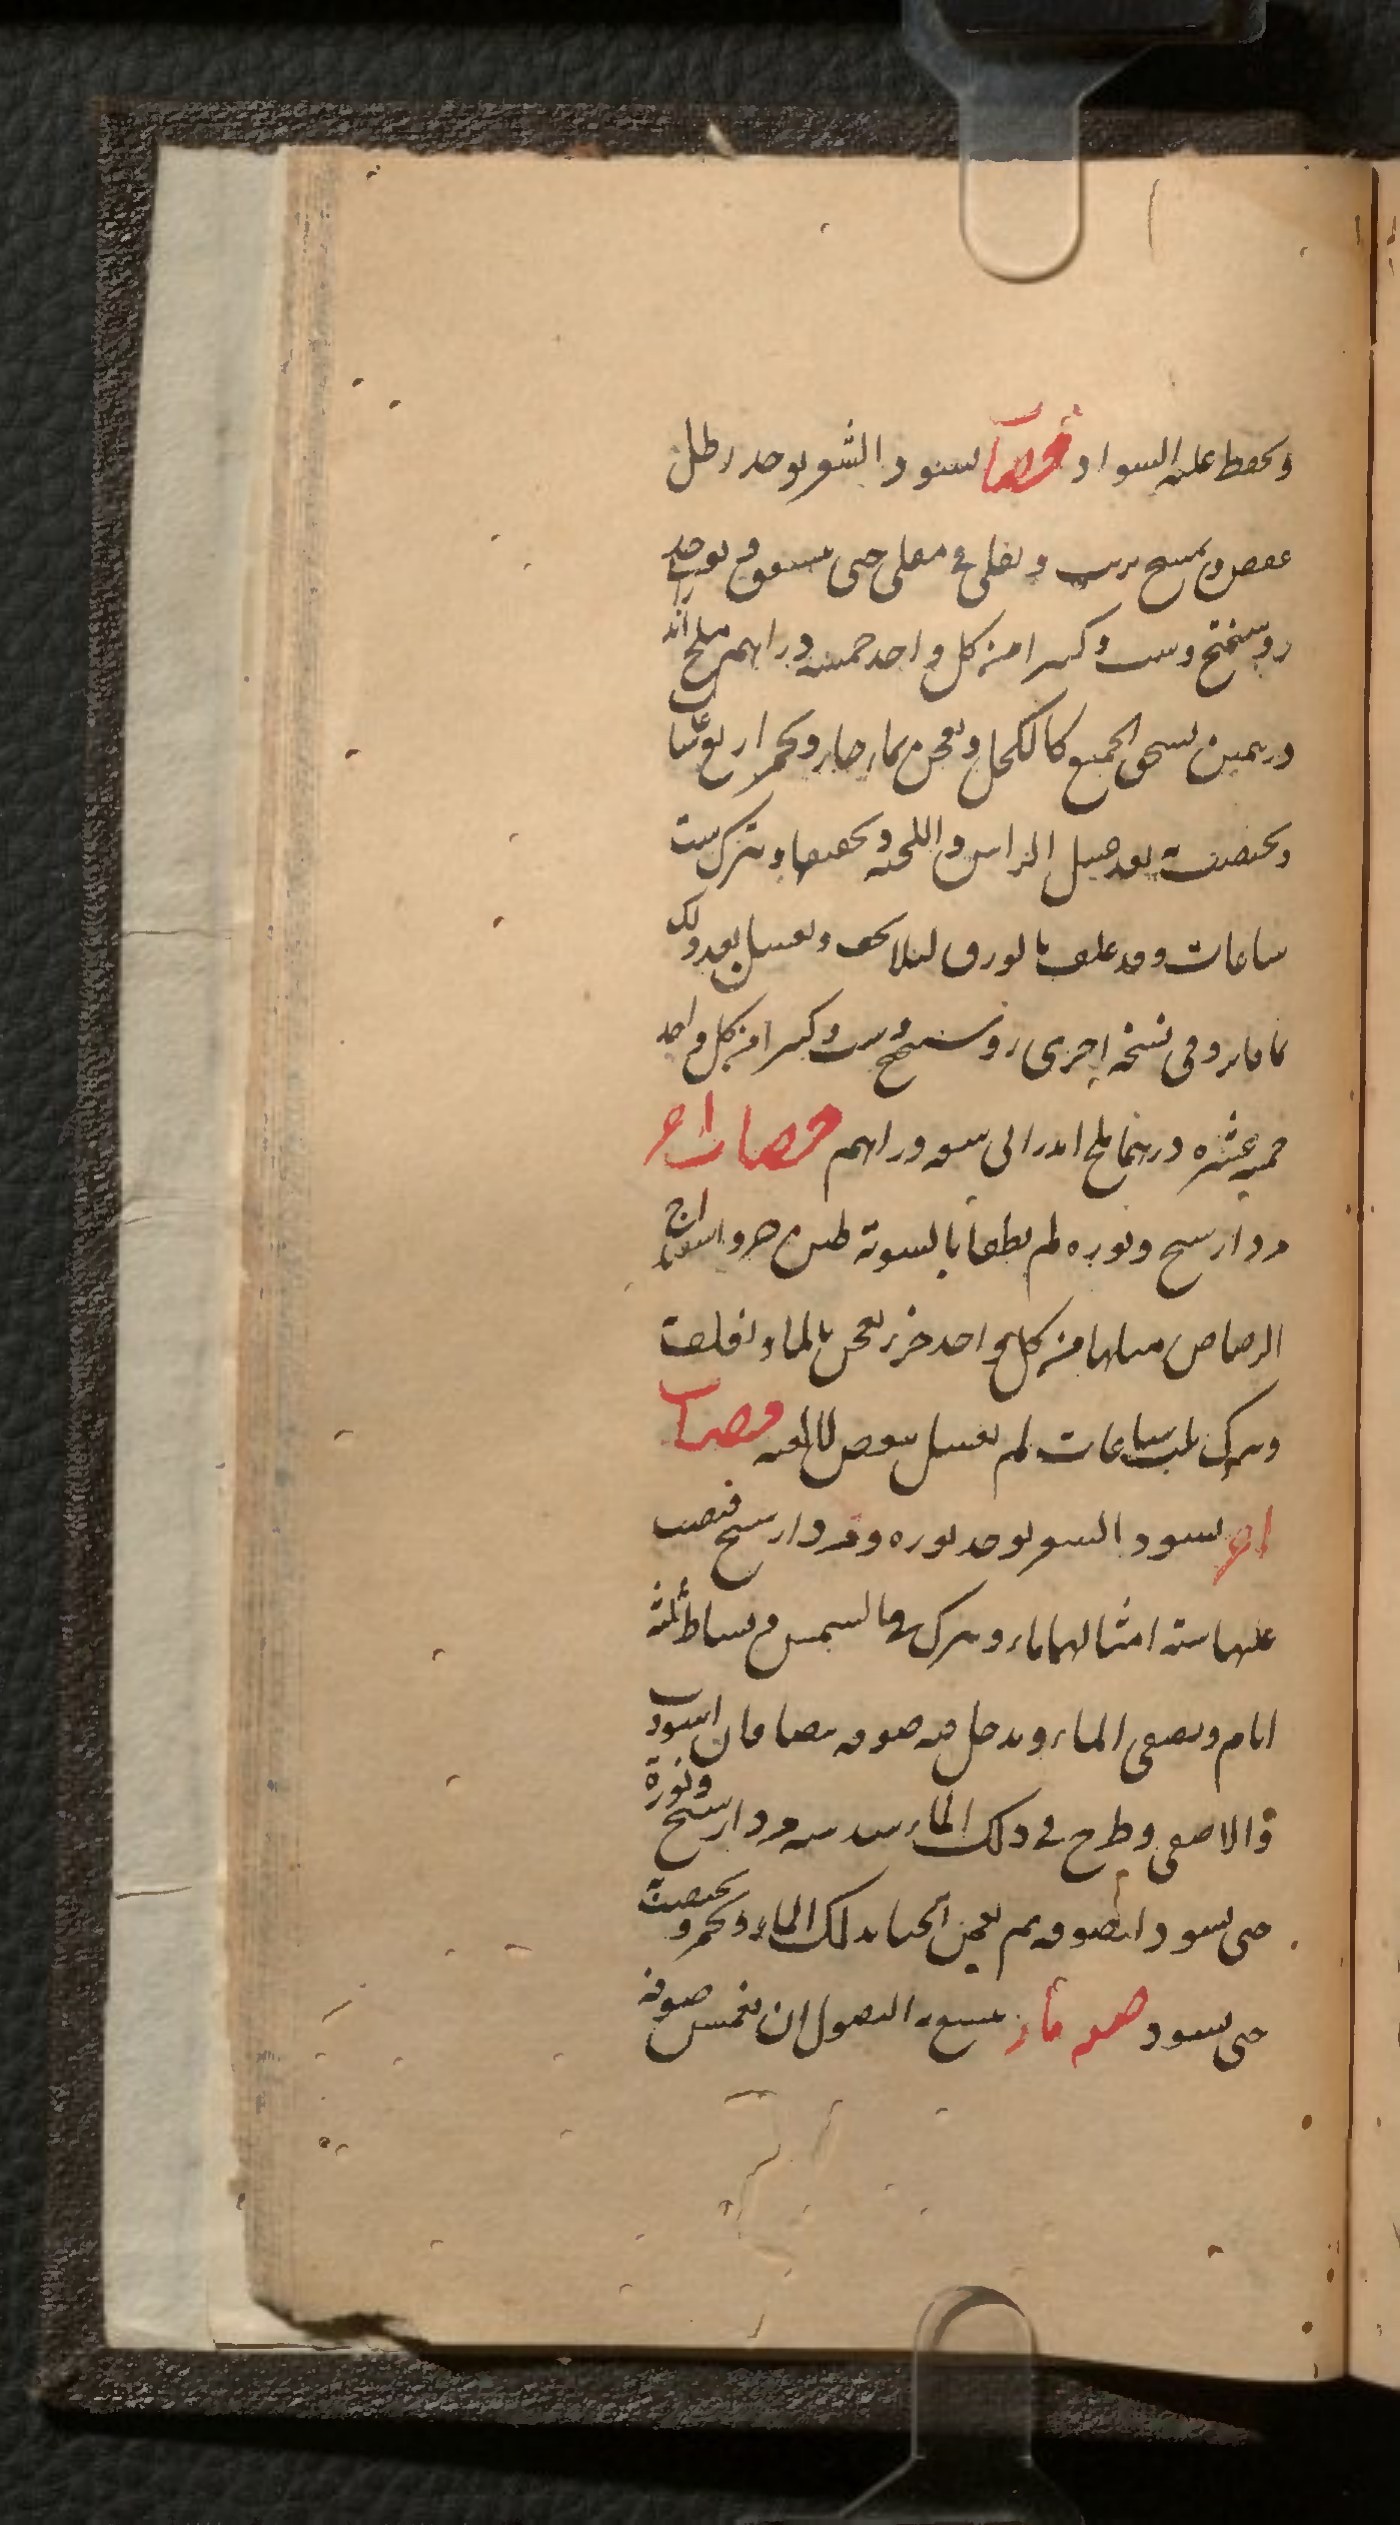 ويحفظ عليه السواد خضاب يسود الشعر يوخذ رطل
عفص ويمسح بزيت ويقلى في مقلى حتى يتشقق ويوخذ
روسختج وشب وكثيرا من كل واحد خمسة دراهم ملح اندرانى
درهمين يسحق الجميع كالكحل ويعجن بماء حار ويخمر اربع ساعات
ويختضب به بعد غسل الراس واللحية وتجفيفها ويترك ست
ساعات وقد علف بالورق ليلا يجف ويغسل بعد ذلك
بماء وفى نسخة اخرى روسختج شب وكثيرا من كل واحد
خمسة عشرة درهما ملح اندرانى سبعة دراهم خضاب اخر
مردارسنج ونوره لم تطفا بالسوية طين حر واسفيداج
الرصاص مثلها من كل واحد جزء يعجن بالماء ويغلف به
ويترك ثلث ساعات ثم يغسل خضاب
اخر يسود الشعر يوخذ نوره ومردارسنج فيصب
عليها ستة امثالهما ماء ويترك في الشمس ويساط ثلثة
ايام ويصفى الماء ويدخل فيه صوفه بيضا فان اسودت
والا صفى وطرح في ذلك الماء مردارسنج ونورة
حتى يسود الصوفه ثم يعجن الحنا بذلك الماء ويخمر ويختضب به
حتى يسود صفه ماء يمنع النصول ان يغمس صوفه